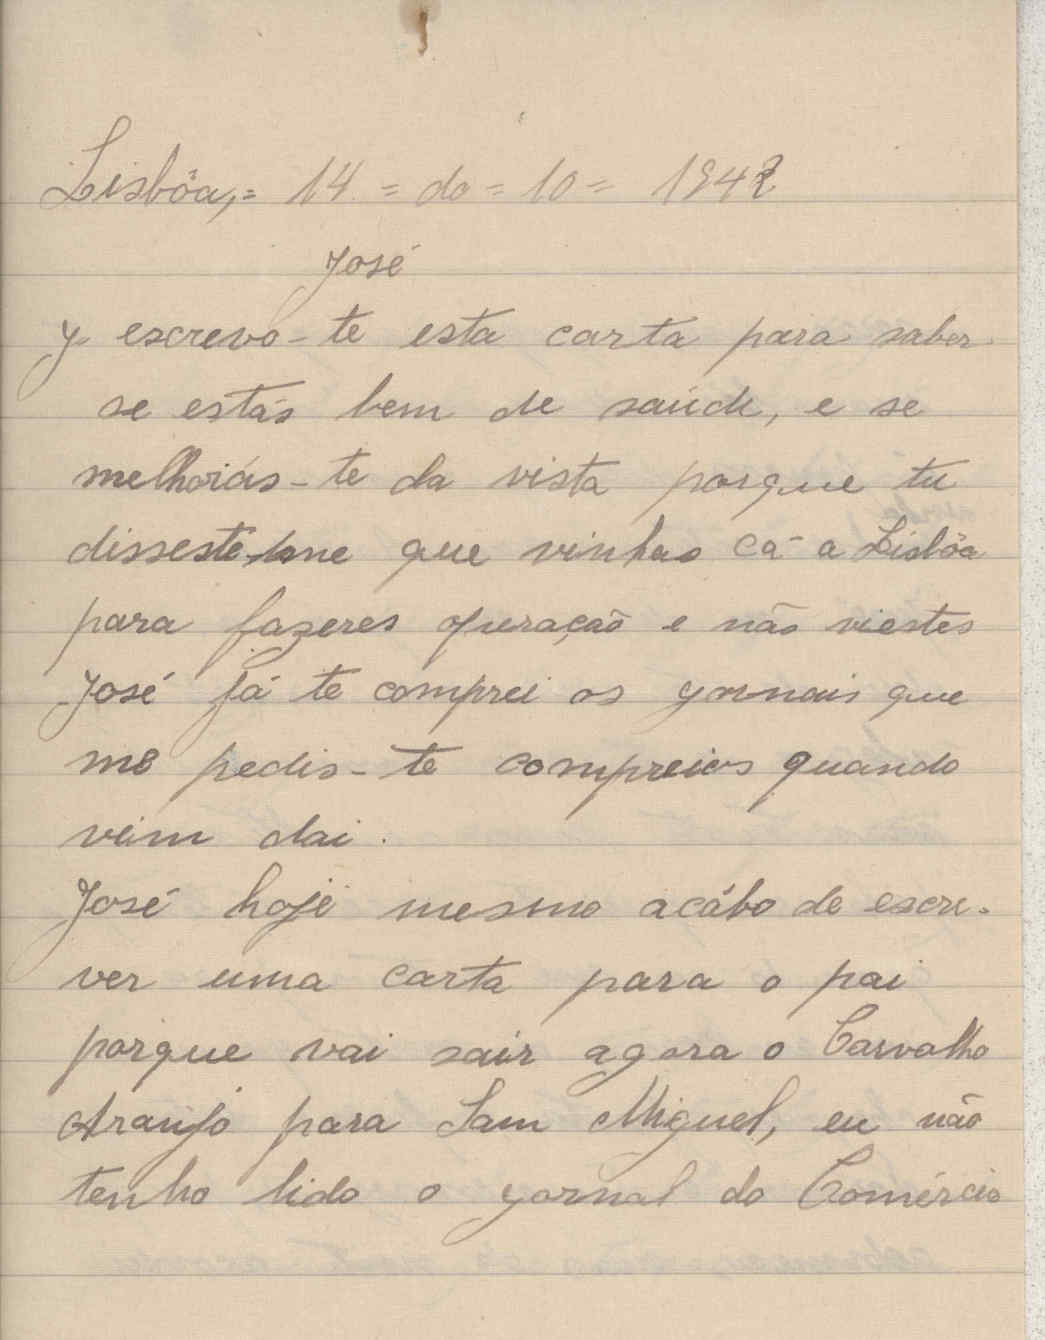 Lisbôa,= 14 = do = 10 = 1942
José
escrevo-te esta carta para saber
se estás bem de saúde, e se
melhorás-te da vista porque tu
disseste-me que vinhas cá a Lisbôa
para fazeres operação e não viestes
José já te comprei os yornais que
me pedis-te compreios quando
vim dai.
José hoje mesmo acábo de escre-
ver uma carta para o pai
porque vai sair agora o Carvalho
Araujo para Sam Miguel, eu não
tenho lido o yornal do Comércio